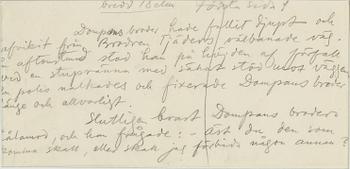 bredd 18 elen första sida 9
Dompans broder hade fallit djupt och
afvikit från Brodren Tjäders välbanade väg.
En aftonstund stod han på höjden af förfall
ved en stuprenna med säkert stöd mot väggen
En polis nalkades och fixerade Dompans broder
länge och allvarligt.
Slutligen brast Dompans broders
tålamod, och han frågade: - äst du den som
komma skall, eller skola jag förbida någon annan?